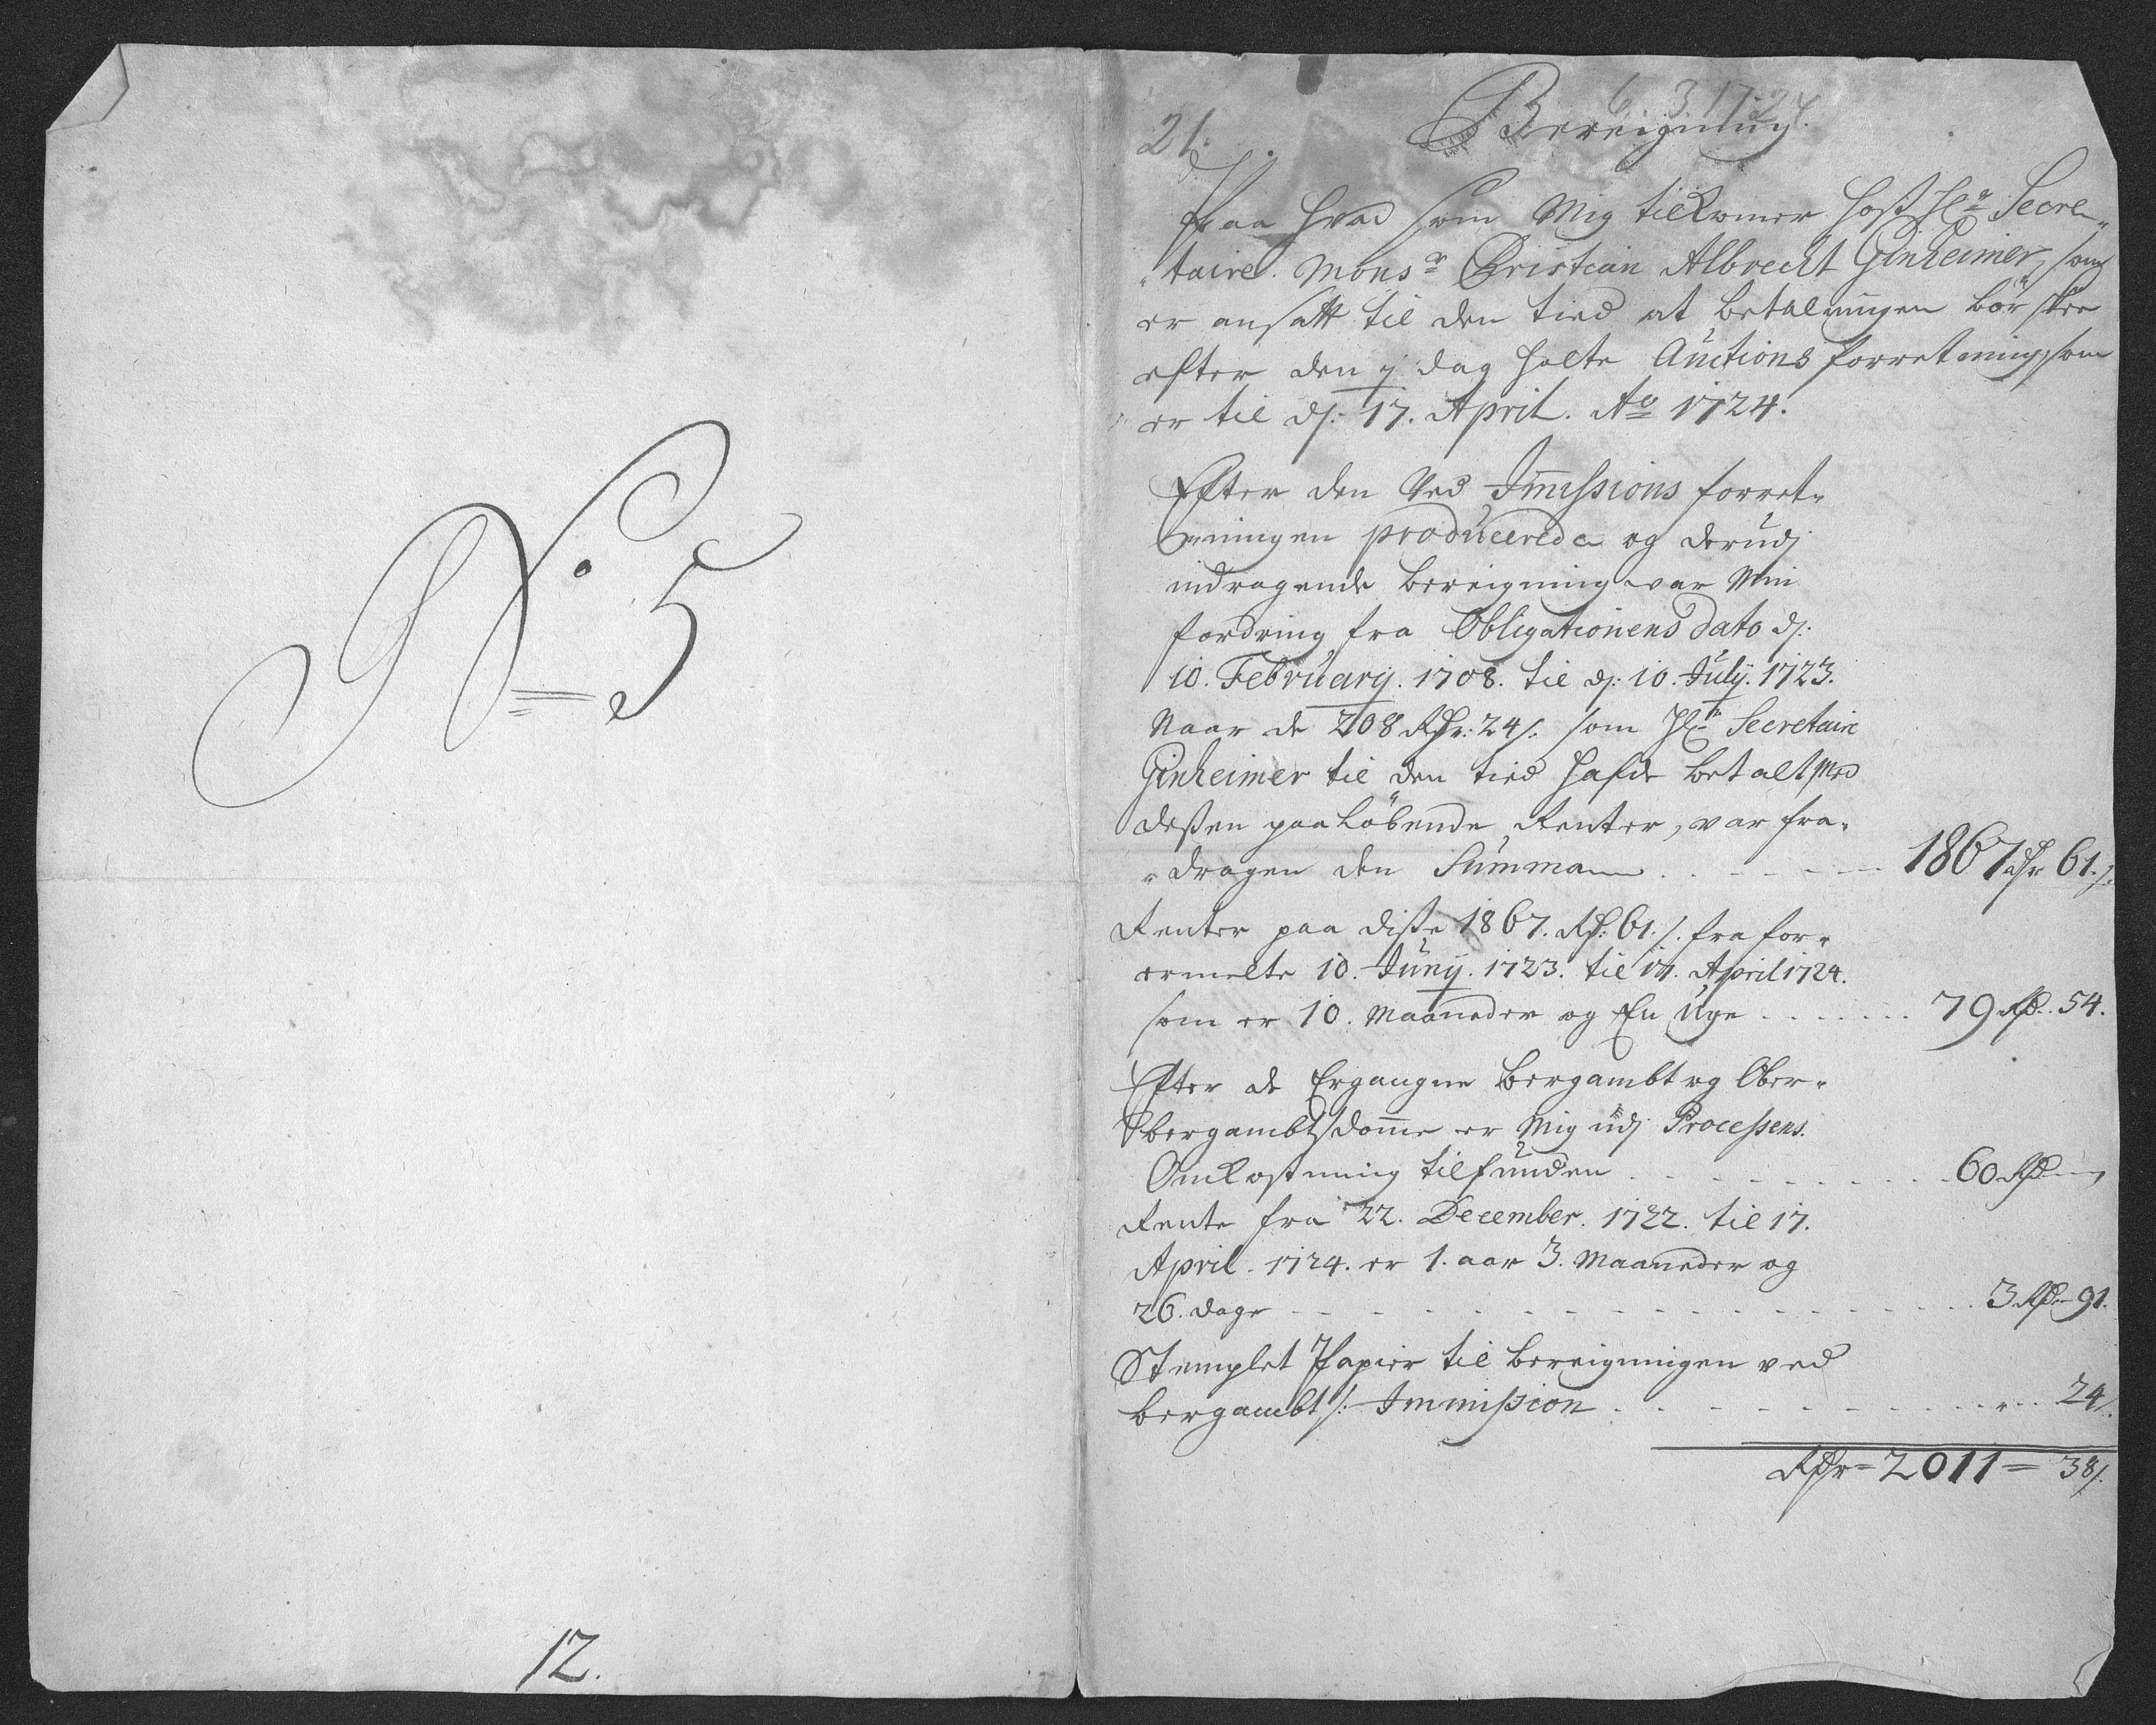 No 5
12.
21.
6. 3. 1724
Bereigning.
Paa hvad som Mig tilkomer hoß Hr Secre-
taire. Monsr Cristian Albrecht Ginheimer, som
er ansatt til den tied at betalningen bör skee
efter den j dag holte Auctions forretning, som
er til dj: 17. April. Ao 1724.
Efter den ved Immissions forret-
ningen producerede og derudj
indragende bereigning var Min
fordring fra Obligationens dato dj:
10. February. 1708. til dj: 10. July. 1723.
Naar de 208 Rdr: 24 s. som Hr Secretaire
Ginheimer til den tied hafde betalt med
deßen paaløbende Renter, var fra-
dragen den Summa 1867 dr 61 s.
Renter paa diße 1867. Rd: 61. s. fra for-
ermelte 10. Juny. 1723. til 17. April 1724.
som er 10. Maaneder og En Uge 79 Rd. 54.
Efter de Ergangne Bergambt og Ober-
bergambts domme er Mig udj Processens.
Omkostning tilfunden 60 Rd
Rente fra 22. December. 1722. til 17.
April. 1724. er 1. aar 3. Maaneder og
26. dage 3 Rd 91.
Stemplet Papier til bereigningen ved
bergambts: Immission 24 s.
Rdr = 2011 = 38 s.